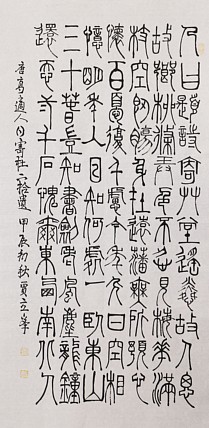 人日題詩寄草堂遙憐故人思
故鄉柳條弄色不忍見梅花滿
枝空斷腸身在遠藩無所預心
懷百憂復千慮今年人日空相
憶明年人日知何處一臥東山
三十春豈知書劍老風塵龍鐘
還忝二千石愧爾東西南北人
唐高適人日寄杜二拾遺 甲辰初秋 夏立峯